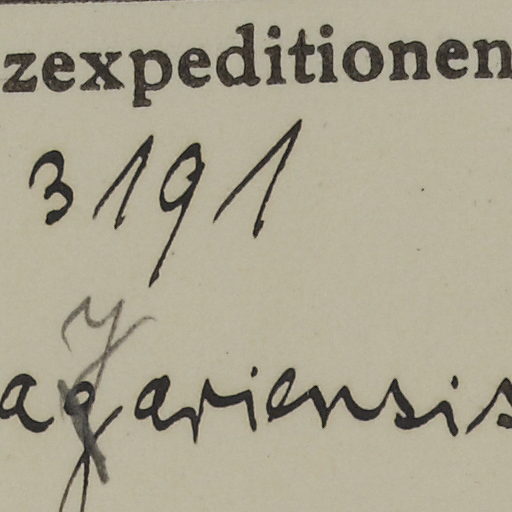 zexpeditionen
3191
agariensis